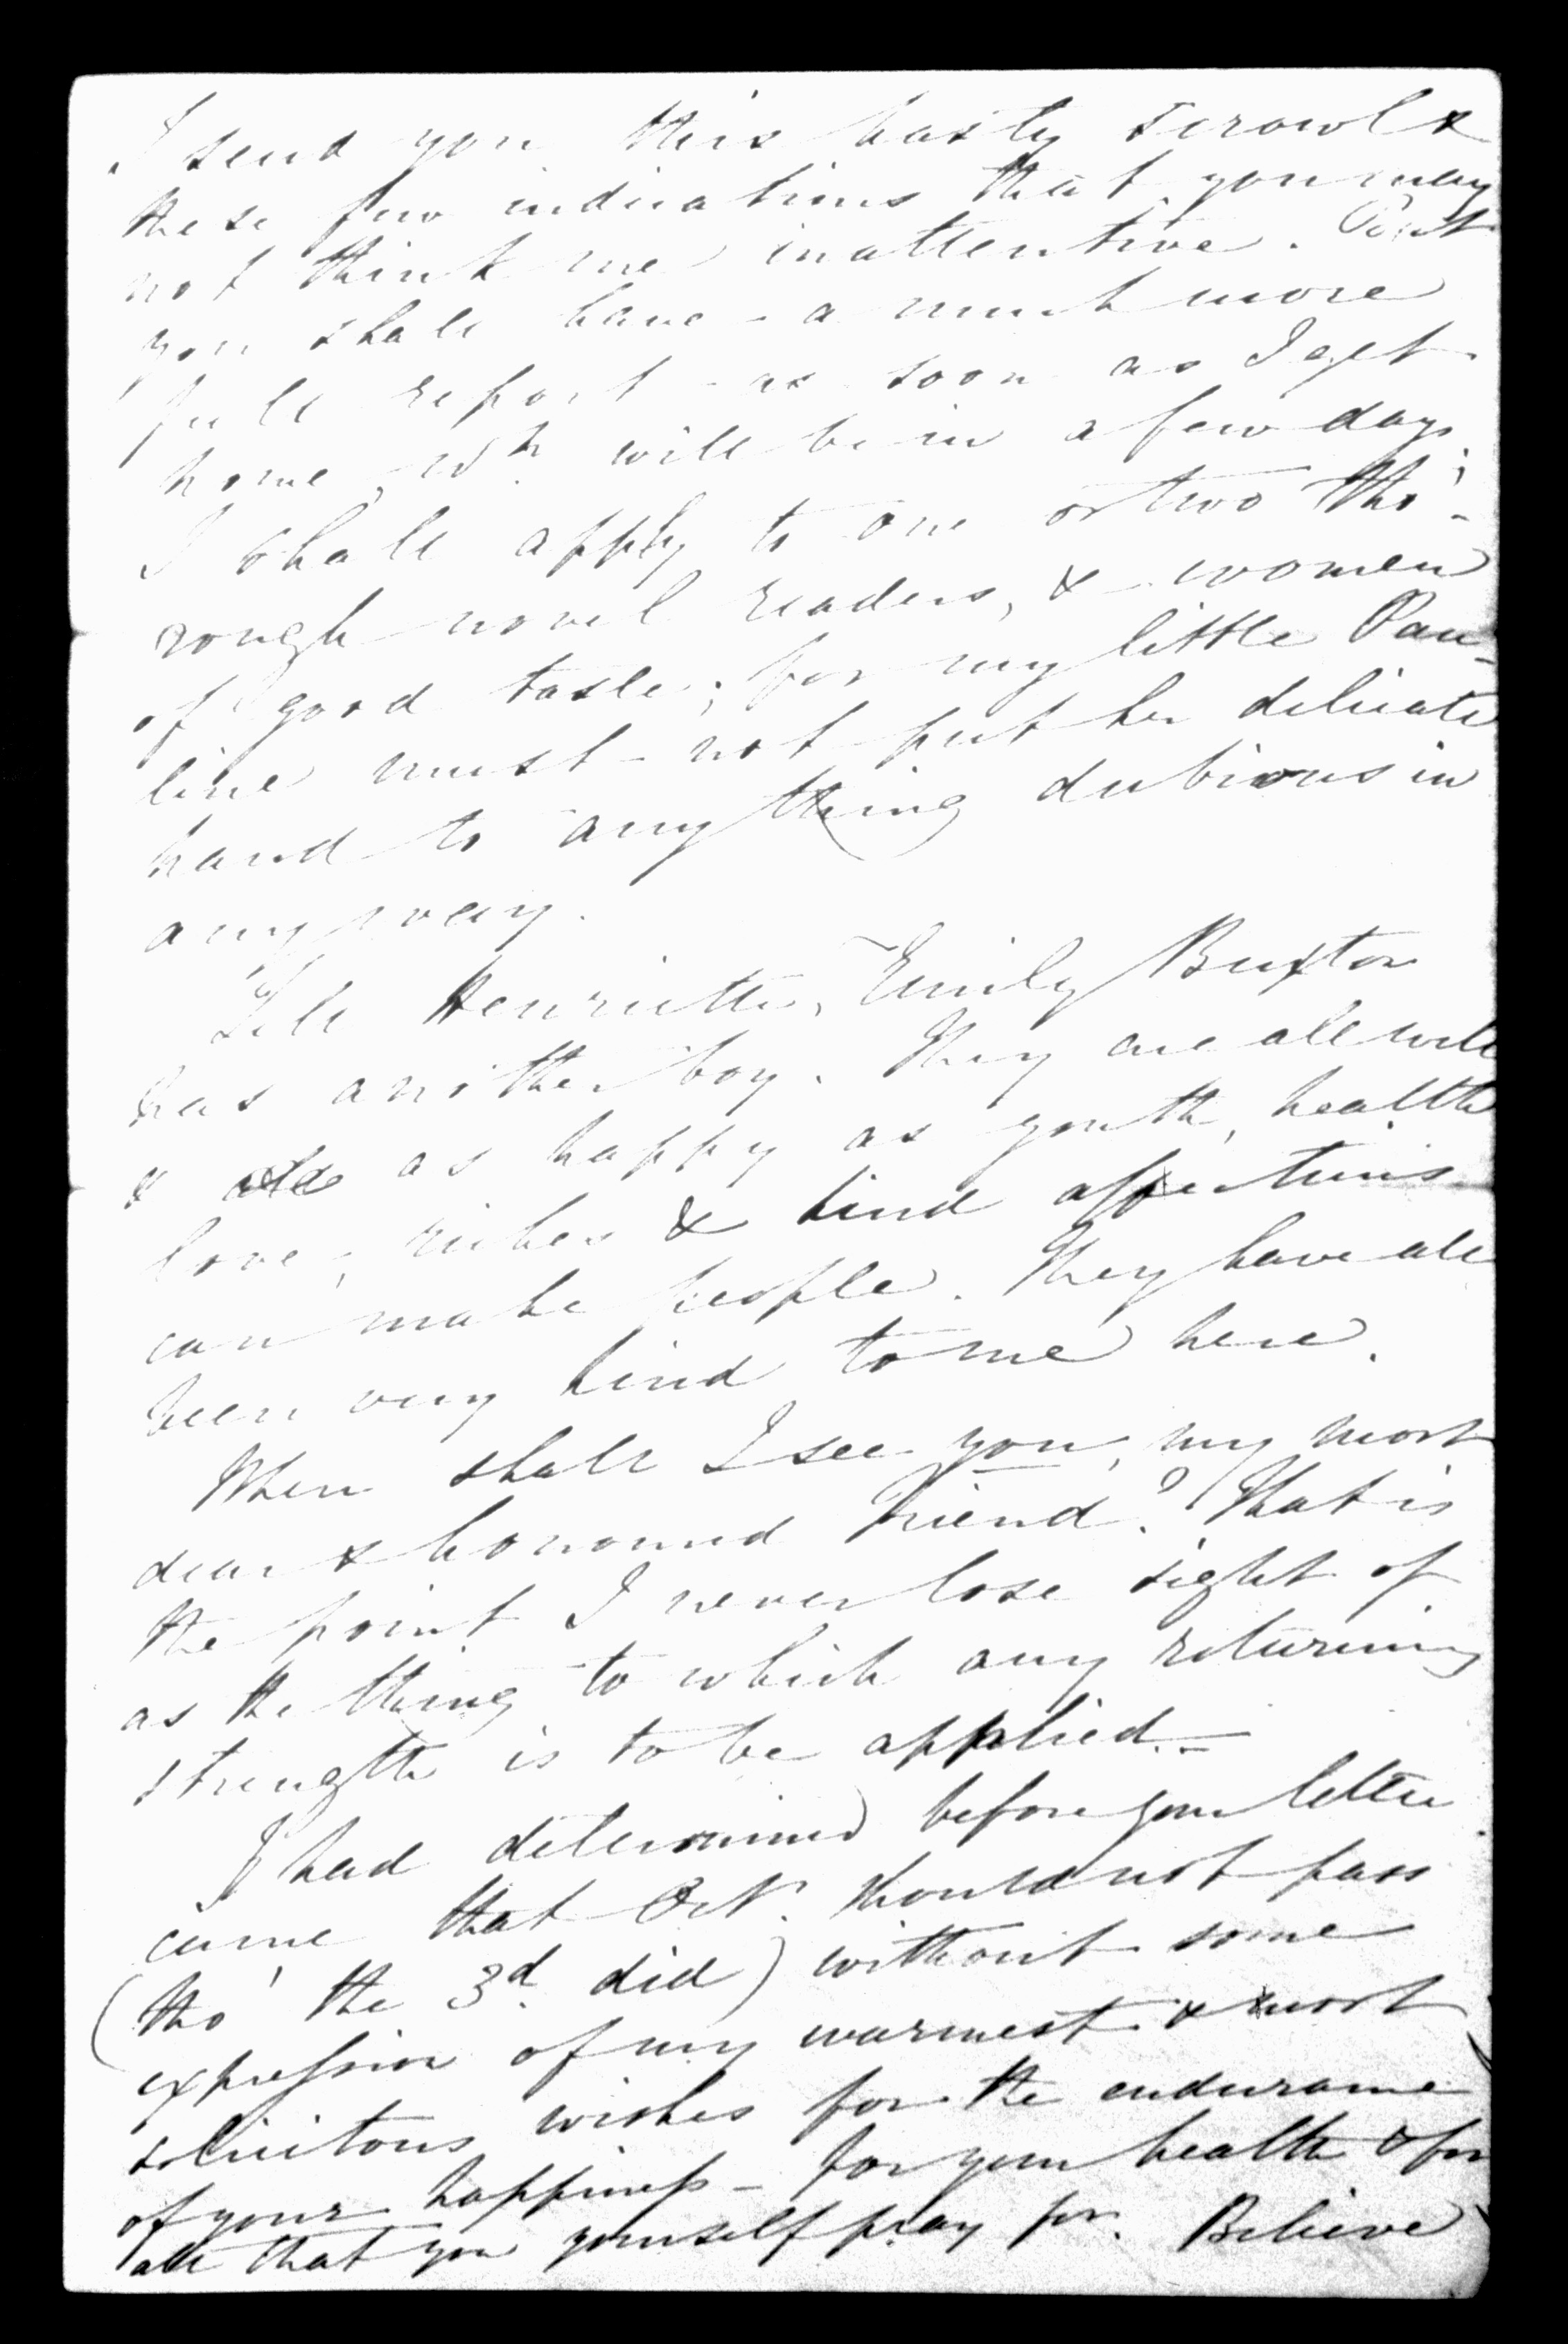 I send you this hasty scrowl &
these few indications that you may
not think me inattentive. But
you shall have a much more
full report as soon as I get
home, wh will be in a few days.
I shall apply to one or two tho'-
rough novel readers, & women
of good taste; for my little Pau-
line must not put her delicate
hand to anything dubious in
any way.
Tell Henrietta, Emily Buxton
has another boy. They are all well
& as happy as youth, health
love, riches & kind affections
can make people. They have all
been very kind to me here.
When shall I see you, my most
dear & honoured Friend? That is
the point I never lose sight of
as the thing to which any returning
strength is to be applied. –
I had determined before your letter
came that Octr. should not pass
(tho' the 3d. did) without some
expression of my warmest & most
solicitous wishes for the endurance
of your happiness – for your health & for
all that you yourself pray for. Believe